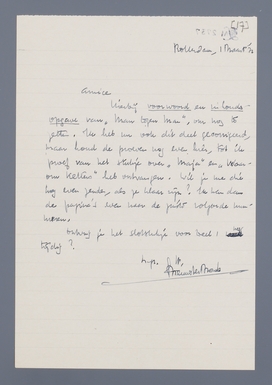 [17]
Rotterdam, 1 Maart
Amice
Hierbij voorwoord en inhouds-
opgave van "Man tegen Man", om nog te
zetten. Ik heb nu ook dit deel gecorrigeerd,
maar houd de proeven nog even hier, tot ik
proef van het stukje over "Marja" en "Waar-
om ketters" heb ontvangen. Wil je me die
nog even zenden, als je klaar bent? Ik kan dan
de pagina's even naar de juiste volgorde num-
meren.
Ontving je het slotstukje voor deel I
tijdig?
h. gr.
Menno ter Braak